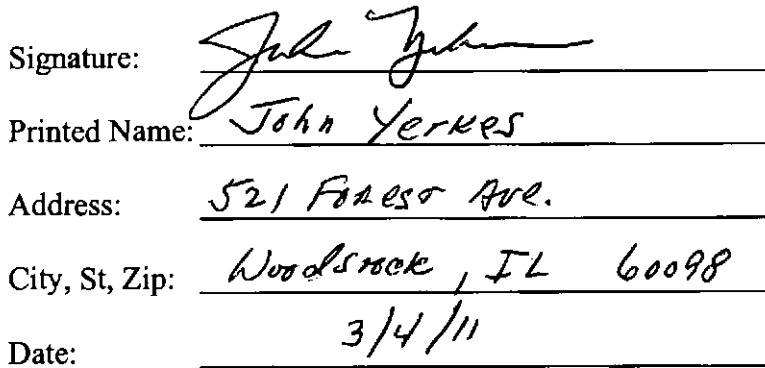 Signature: John Yerkes
Printed Name: John Yerkes
Address: 521 Forest Ave.
City, St, Zip: Woodstock, IL 60098
Date: 3/4/11